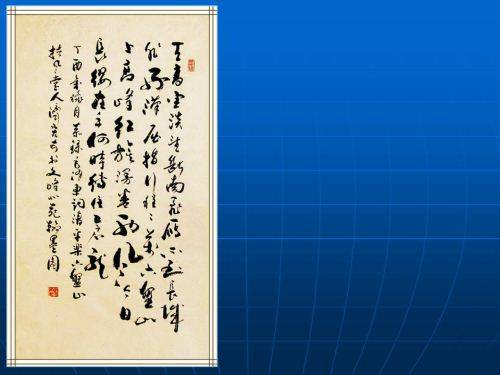 天高雲淡望斷南飛雁不到長城
非好漢屈指行程二萬六盤山
上高峰紅旗漫卷西風今日
長纓在手何時縛住蒼龍
丁酉年 月 錄毛澤東詞清平樂六盤山
人 書 翰墨園